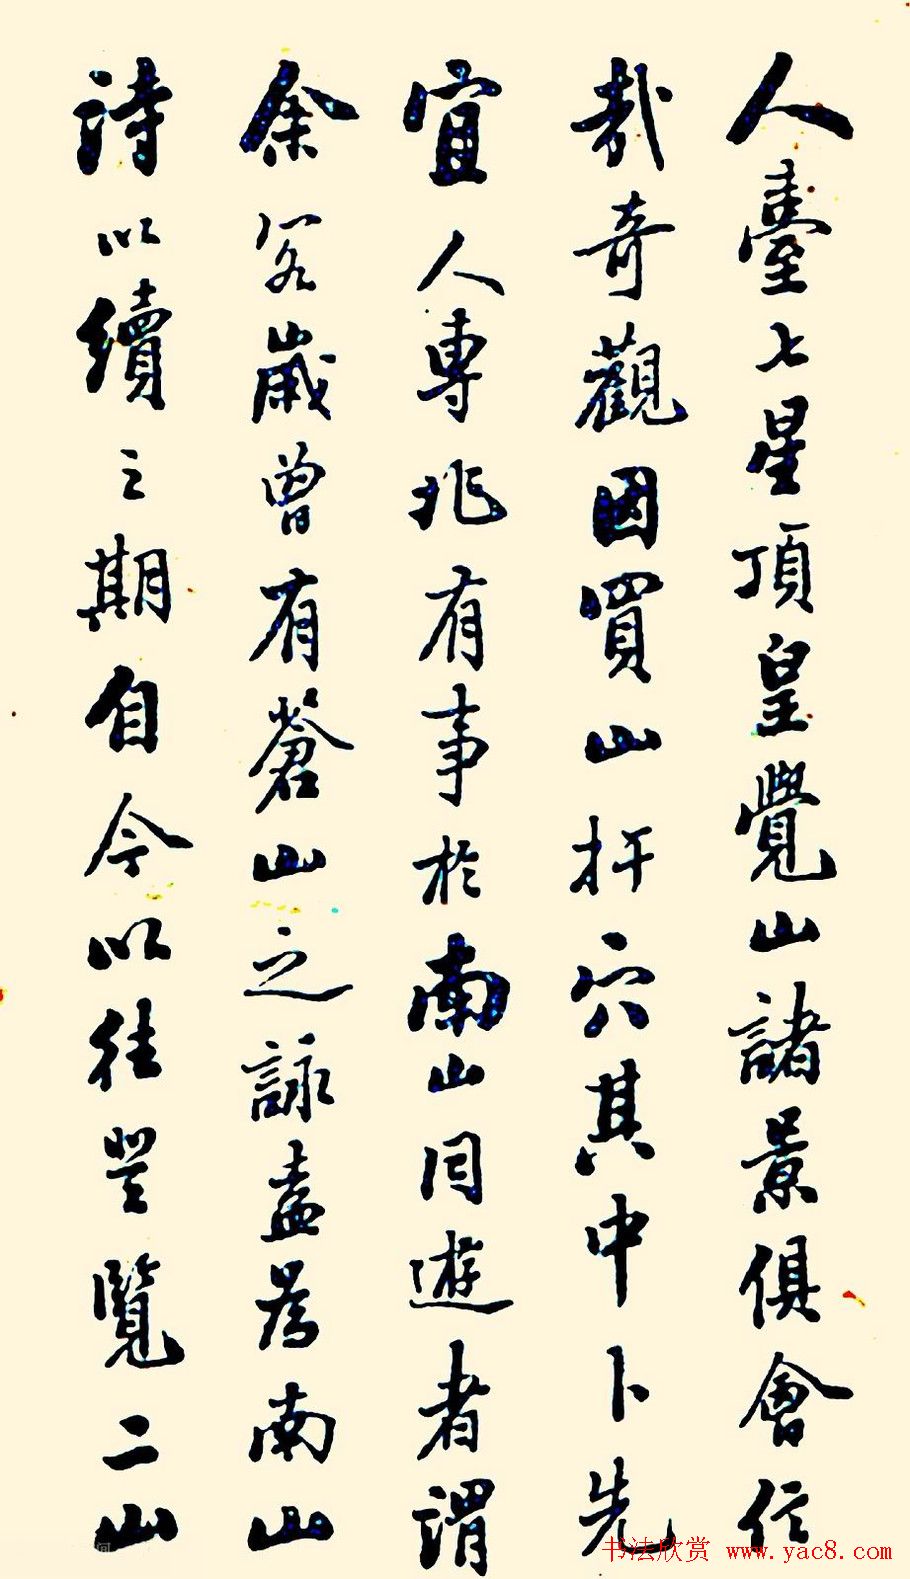 人臺七星頂皇覺山諸景俱會信
哉奇觀因買山扦穴其中卜先
宜人專兆有事於南山同遊者謂
余客歲曾有蒼山之詠盍為南山
詩以續之期自今以往登覽二山
书法欣赏 www.yac8.com